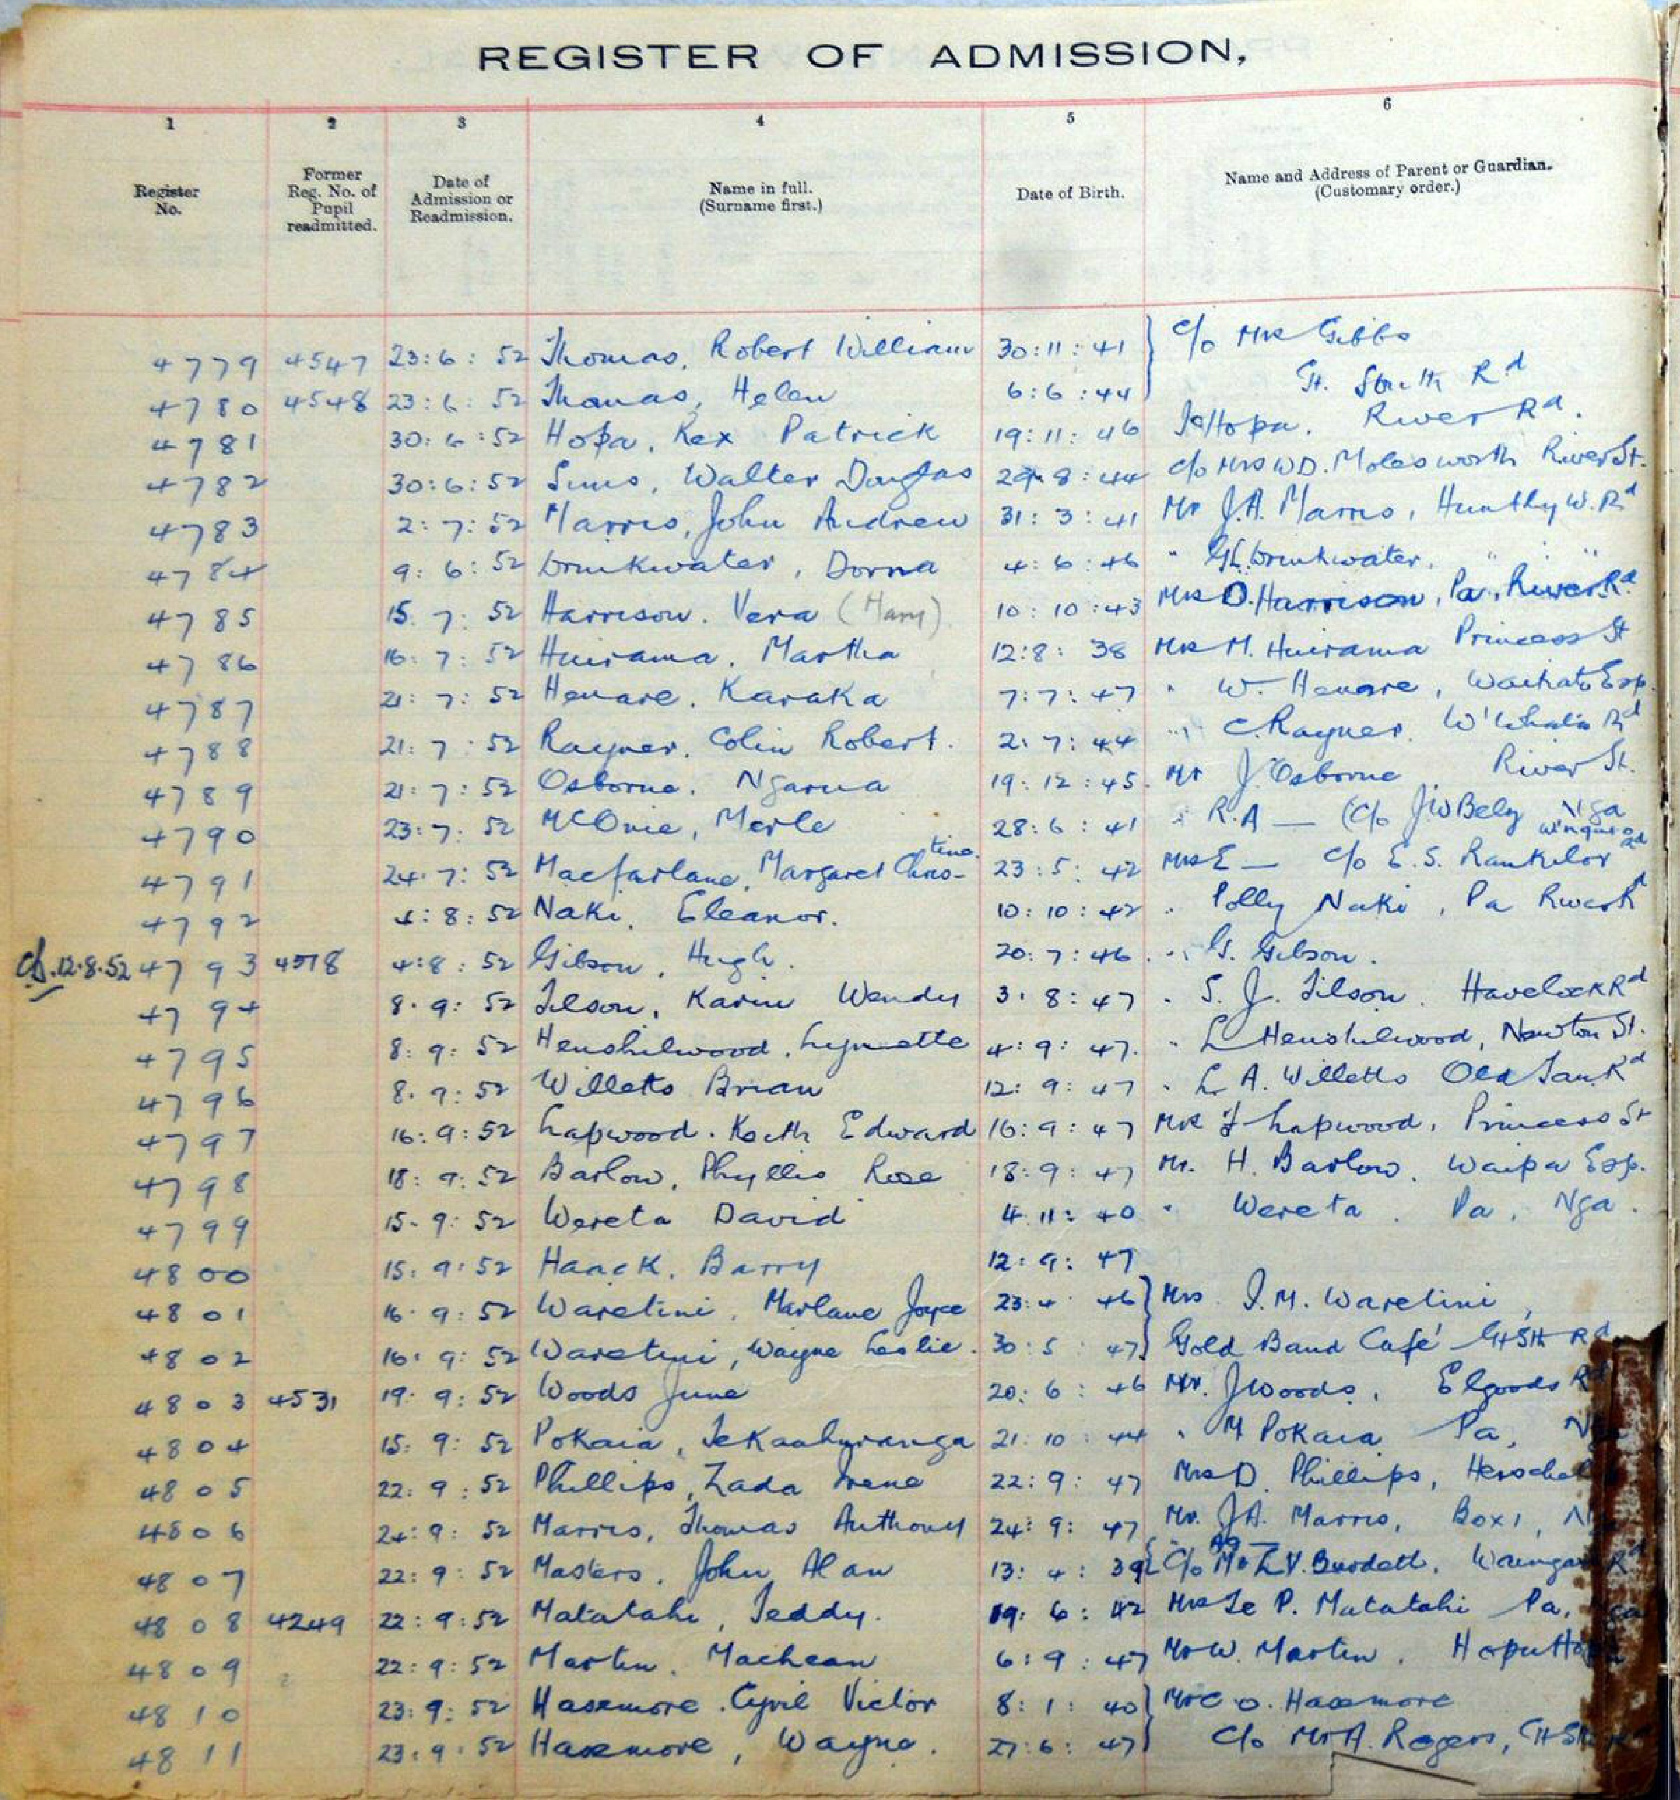 REGISTER OF ADMISSION,
1 2 3 4 5 6
Register No. Former Reg. No. of Pupil readmitted. Date of Admission or Readmission. Name in full. (Surname first.) Date of Birth. Name and Address of Parent or Guardian. (Customary order.)
4779 4547 23:6:52 Thomas, Robert William 30:11:41 } c/o Mrs Gibbs
4780 4548 23:6:52 Thomas, Helen 6:6:44 Gt. South Rd
4781 30:6:52 Hopa, Rex Patrick 19:11:46 Hopa. River Rd.
4782 30:6:52 Sims, Walter Douglas 8:44 c/o Mrs W D. Molesworth River St.
4783 2:7:52 Marris, John Andrew 31:3:41 Mr J.A. Marris, Huntly W. Rd
4784 9:6:52 Drinkwater, Donna 4:6:46 " G.L. Drinkwater. " " "
4785 15.7:52 Harrison. Vera (Mary) 10:10:43 Mrs D. Harrison, Pa, River Rd.
4786 16:7:52 Huirama. Martha 12:8:38 Mrs M. Huirama Princess St
4787 21:7:52 Henare. Karaka 7:7:47 " W. Henare, Waikato Esp.
4788 21:7:52 Rayner. Colin Robert. 2:7:44 " C. Rayner. Rd
4789 21:7:52 Osborne. Ngarua 19:12:45. Mr J. Osborne River St.
4790 23:7:52 McOnie, Merle 28:6:41 " R.A — (c/o J W Bely Nga
4791 24.7:52 Macfarlane, Margaret Chris-tina. 23:5:42 Mrs E — c/o E.S. Rankilor Rd
4792 4:8:52 Naki, Eleanor. 10:10:42 " Polly Naki, Pa River R
12.8.52 4793 4578 4:8:52 Gibson, Hugh. 20:7:46 " G. Gibson.
4794 8.9:52 Tilson, Karin Wendy 3.8:47 " S. J. Tilson. Havelock Rd
4795 8:9:52 Henshilwood, Lynette 4:9:47. " L Henshilwood, Newton St.
4796 8.9:52 Willetts Brian 12:9:47 " L A. Willetts Old Tau. Rd
4797 16:9:52 Lapwood. Keith Edward 16:9:47 Mr F Lapwood, Princess St
4798 18:9:52 Barlow, Phyllis Rose 18:9:47 Mr. H. Barlow. Waipa Esp.
4799 15.9:52 Wereta David 4.11:40 " Wereta. Pa, Nga.
4800 15.9:52 Haack. Barry 12:9:47
4801 16.9:52 Waretini, Marlane Joyce 23:4 46 } Mrs I.M. Waretini,
4802 16:9:52 Waretini, Wayne Leslie. 30:5:47 } Gold Band Café Gt Sth Rd
4803 4531 19:9:52 Woods June 20:6:46 Mr. J Woods, Elgoods Rd
4804 15:9:52 Pokaia, Tekaahuranga 21:10:44 " M Pokaia Pa,
4805 22:9:52 Phillips, Zada Irene 22:9:47 Mrs D. Phillips, Herschel
4806 24:9:52 Marris, Thomas Anthony 24:9:47 Mr. J.A. Marris, Box 1,
4807 22:9:52 Masters, John Alan 13:4:39 c/o Mr L.V. Burdett, Rd
4808 4249 22:9:52 Matatahi, Teddy. 19:6:42 Mrs Te P. Matatahi Pa,
4809 22:9:52 Martin. Maclean 6:9:47 Mr W. Martin. Hopu Ho
4810 23:9:52 Hasemore. Cyril Victor 8:1:40 } Mr C O. Hasemore
4811 23:9:52 Hasemore, Wayne. 27:6:47 } c/o Mr A. Rogers,